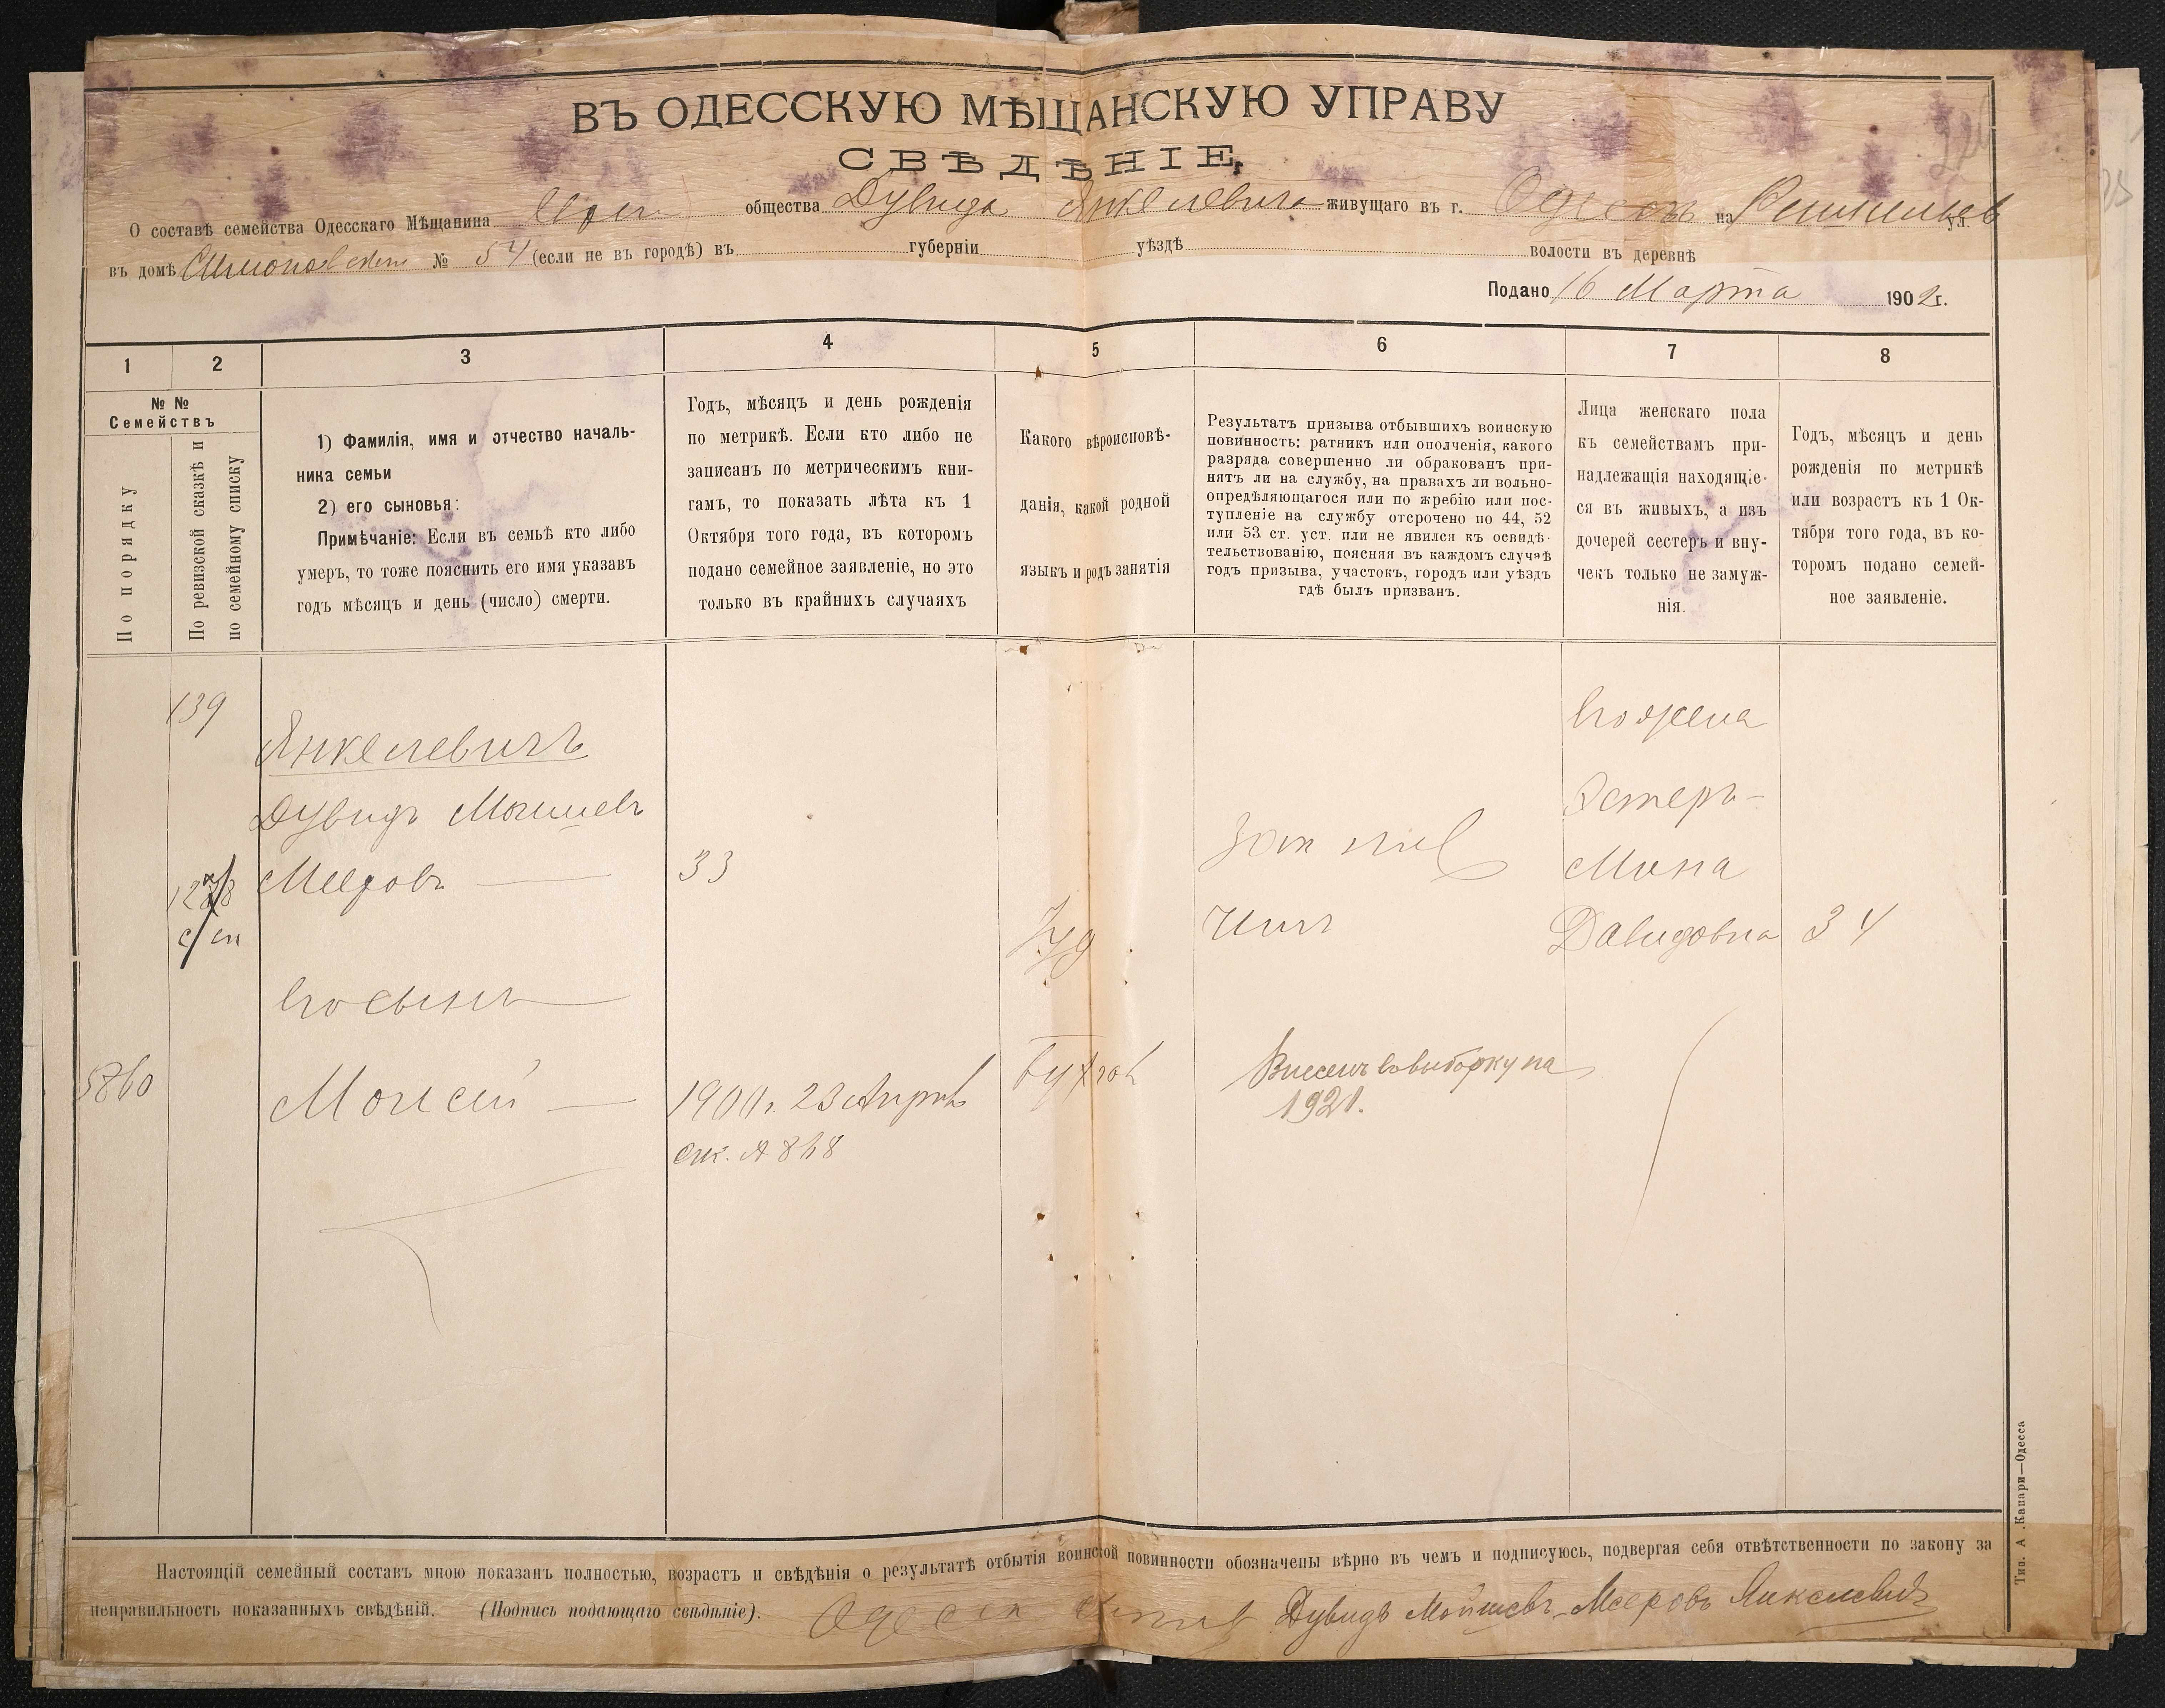 ВЪ ОДЕССКУЮ МѢЩАНСКУЮ УПРАВУ
СВѢДѢНІЕ.
О составѣ семейства Одесскаго Мѣщанина Евр общества Дувида Янкелевича живущаго въ г. Одессѣ на Ришельев ул.
въ домѣ № 54 (если не въ городѣ) въ губерніи уѣздѣ волости въ деревнѣ
Подано 16 Марта 1902 г.
1 2 3 4 5 6 7 8
№ №
Семействъ
По порядку
По ревизской сказкѣ и
по семейному списку
1) Фамилія, имя и отчество началь-
ника семьи
2) его сыновья:
Примѣчаніе: Если въ семьѣ кто либо
умеръ, то тоже пояснить его имя указавъ
годъ мѣсяцъ и день (число) смерти.
Годъ, мѣсяцъ и день рожденія
по метрикѣ. Если кто либо не
записанъ по метрическимъ кни-
гамъ, то показать лѣта къ 1
Октября того года, въ которомъ
подано семейное заявленіе, но это
только въ крайнихъ случаяхъ
Какого вѣроисповѣ-
данія, какой родной
языкъ и родъ занятія
Результатъ призыва отбывшихъ воинскую
повинность: ратникъ или ополченія, какого
разряда совершенно ли обракованъ при-
нятъ ли на службу, на правахъ ли вольно-
опредѣляющагося или по жребію или пос-
тупленіе на службу отсрочено по 44, 52
или 53 ст. уст. или не явился къ освидѣ-
тельствованію, поясняя въ каждомъ случаѣ
годъ призыва, участокъ, городъ или уѣздъ
гдѣ былъ призванъ.
Лица женскаго пола
къ семействамъ при-
надлежащія находящіе-
ся въ живыхъ, а изъ
дочерей сестеръ и вну-
чекъ только не замуж-
нія.
Годъ, мѣсяцъ и день
рожденія по метрикѣ
или возрастъ къ 1 Ок-
тября того года, въ ко-
торомъ подано семей-
ное заявленіе.
139
Янкелевичъ
Его жена
Дувидъ Мошиевъ
Эстеръ-
Мееровъ 33
Мина
Іуд.
Давидовна 34
Его сынъ
5860
Моисей 1900 г. 23 Апрѣл
Бухгал
Внесенъ въ выборку на
1921.
868
Настоящій семейный составъ мною показанъ полностью, возрастъ и свѣдѣнія о результатѣ отбытія воинской повинности обозначены вѣрно въ чемъ и подписуюсь, подвергая себя отвѣтственности по закону за
неправильность показанныхъ свѣдѣній. (Подпись подающаго свѣдѣніе). Дувидъ Мойшевъ-Мееровъ Янкелевичъ
Тип. А. Капари—Одесса